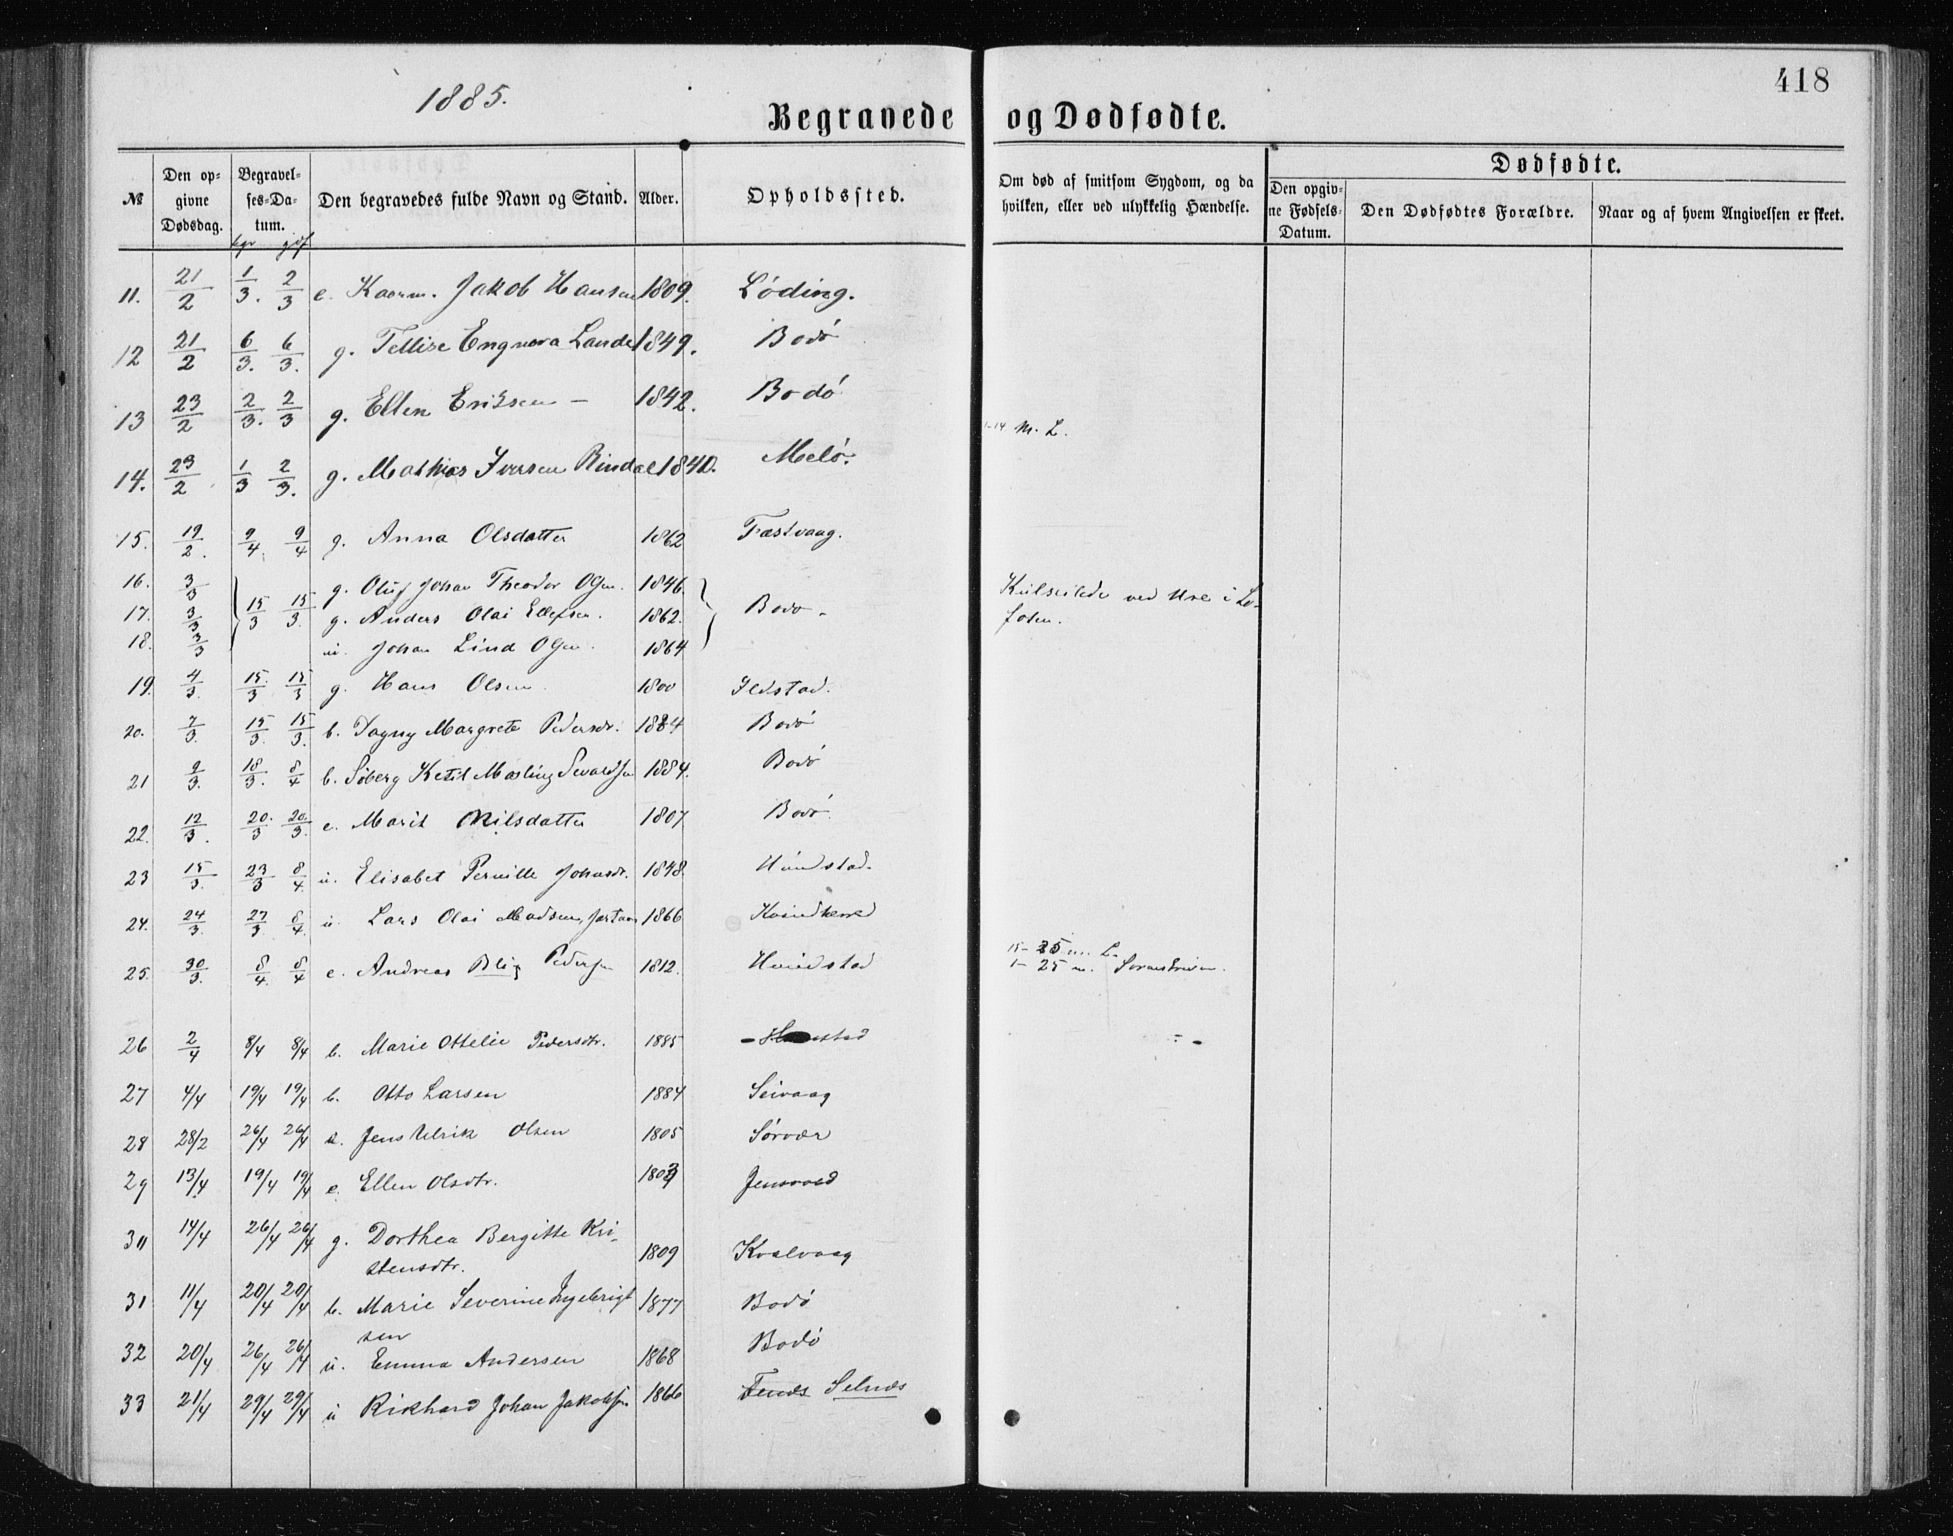 418
1885.
Begravede og Dødfødte.
№ Den opgivne Dødsdag. Begravelses-Datum. Den begravedes fulde Navn og Stand. Alder. Opholdssted. Om død af smitsom Sygdom, og da hvilken, eller ved ulykkelig Hændelse. Dødfødte. Den opgivne Fødsels-Datum. Den Dødfødtes Forældre. Naar og af hvem Angivelsen er skeet.
11. 21/2 1/3. 2/3 e. Jakob Hansen 1809. Løding.
12 21/2 6/3. 6/3. g. Lande 1849. Bodø
13 23/2 2/3. 2/3 g. Ellen Eriksen – 1842. Bodø
1-14 M. L.
14. 23/2 1/3 2/3. g. Mathias Iversen Rindal 1840. Melø.
15. 19/2. 9/4. 9/4 g. Anna Olsdatter 1862 Fastvaag.
16. 3/3 15/3 15/3. g. Oluf Johan Theodor Olsen. 1846. Bodø. Kuilseilede ved Ure i Lo-
17. 3/3 g. Anders Olai Ellefsen. 1862. foten.
18. 3/3 u. Johan Lind Olsen. 1864
19. 4/3. 15/3. 15/3 g. Hans Olsen 1800 Ildstad.
20. 7/3. 15/3. 15/3. b. Dagny Margrete Pedersdr. 1884 Bodø
21 9/3. 18/3. 8/4 b. Søberg Ketil 1884. Bodø
22. 12/3. 20/3 20/3. e. Marit Nilsdatter 1807 Bodø
23 15/3. 23/3 8/4. u. Elisabet Pernille Johnsdr. 1848.
24. 24/3. 27/3 8/4. u. Lars Olai Madsen, 1866
25. 30/3. 8/4. 8/4 e. Andreas Blix Pedersen 1812. 15-25 m. L.
1-25 m.
26 2/4 8/4 8/4 b. Marie Ottelie Pedersdtr. 1885
27 4/4 19/4 19/4 b. Otto Larsen 1884 Seivaag
28 28/2 26/4 26/4 Jens Ulrik Olsen 1805 Sørvær
29 13/4 19/4 19/4 e. Ellen Olsdtr. Jensvold
30 14/4 26/4 26/4 g. Dorthea Bergitte Kri-
stensdtr. 1809 Kvalvaag
31 11/4 20/4 20/4 b. Marie Severine Ingebrigt
sen 1877 Bodø
32 20/4 26/4 26/4 u. Emma Andersen 1868 Bodø
33 21/4 29/4 29/4 u Rikhard Johan Jakobsen 1866 Selnæs